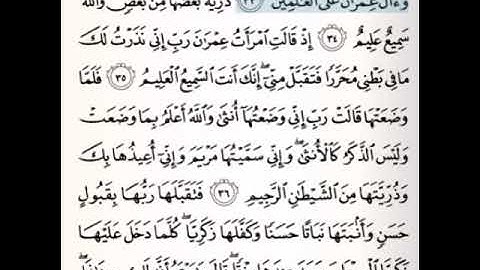 وَءَالَ عِمْرَٰنَ عَلَى ٱلْعَٰلَمِينَ ٣٣ ذُرِّيَّةًۢ بَعْضُهَا مِنۢ بَعْضٍ وَٱللَّهُ
سَمِيعٌ عَلِيمٌ ٣٤ إِذْ قَالَتِ ٱمْرَأَتُ عِمْرَٰنَ رَبِّ إِنِّى نَذَرْتُ لَكَ
مَا فِى بَطْنِى مُحَرَّرًا فَتَقَبَّلْ مِنِّىٓ إِنَّكَ أَنتَ ٱلسَّمِيعُ ٱلْعَلِيمُ ٣٥ فَلَمَّا
وَضَعَتْهَا قَالَتْ رَبِّ إِنِّى وَضَعْتُهَآ أُنثَىٰ وَٱللَّهُ أَعْلَمُ بِمَا وَضَعَتْ
وَلَيْسَ ٱلذَّكَرُ كَٱلْأُنثَىٰ وَإِنِّى سَمَّيْتُهَا مَرْيَمَ وَإِنِّىٓ أُعِيذُهَا بِكَ
وَذُرِّيَّتَهَا مِنَ ٱلشَّيْطَٰنِ ٱلرَّجِيمِ ٣٦ فَتَقَبَّلَهَا رَبُّهَا بِقَبُولٍ
حَسَنٍ وَأَنۢبَتَهَا نَبَاتًا حَسَنًا وَكَفَّلَهَا زَكَرِيَّا كُلَّمَا دَخَلَ عَلَيْهَا